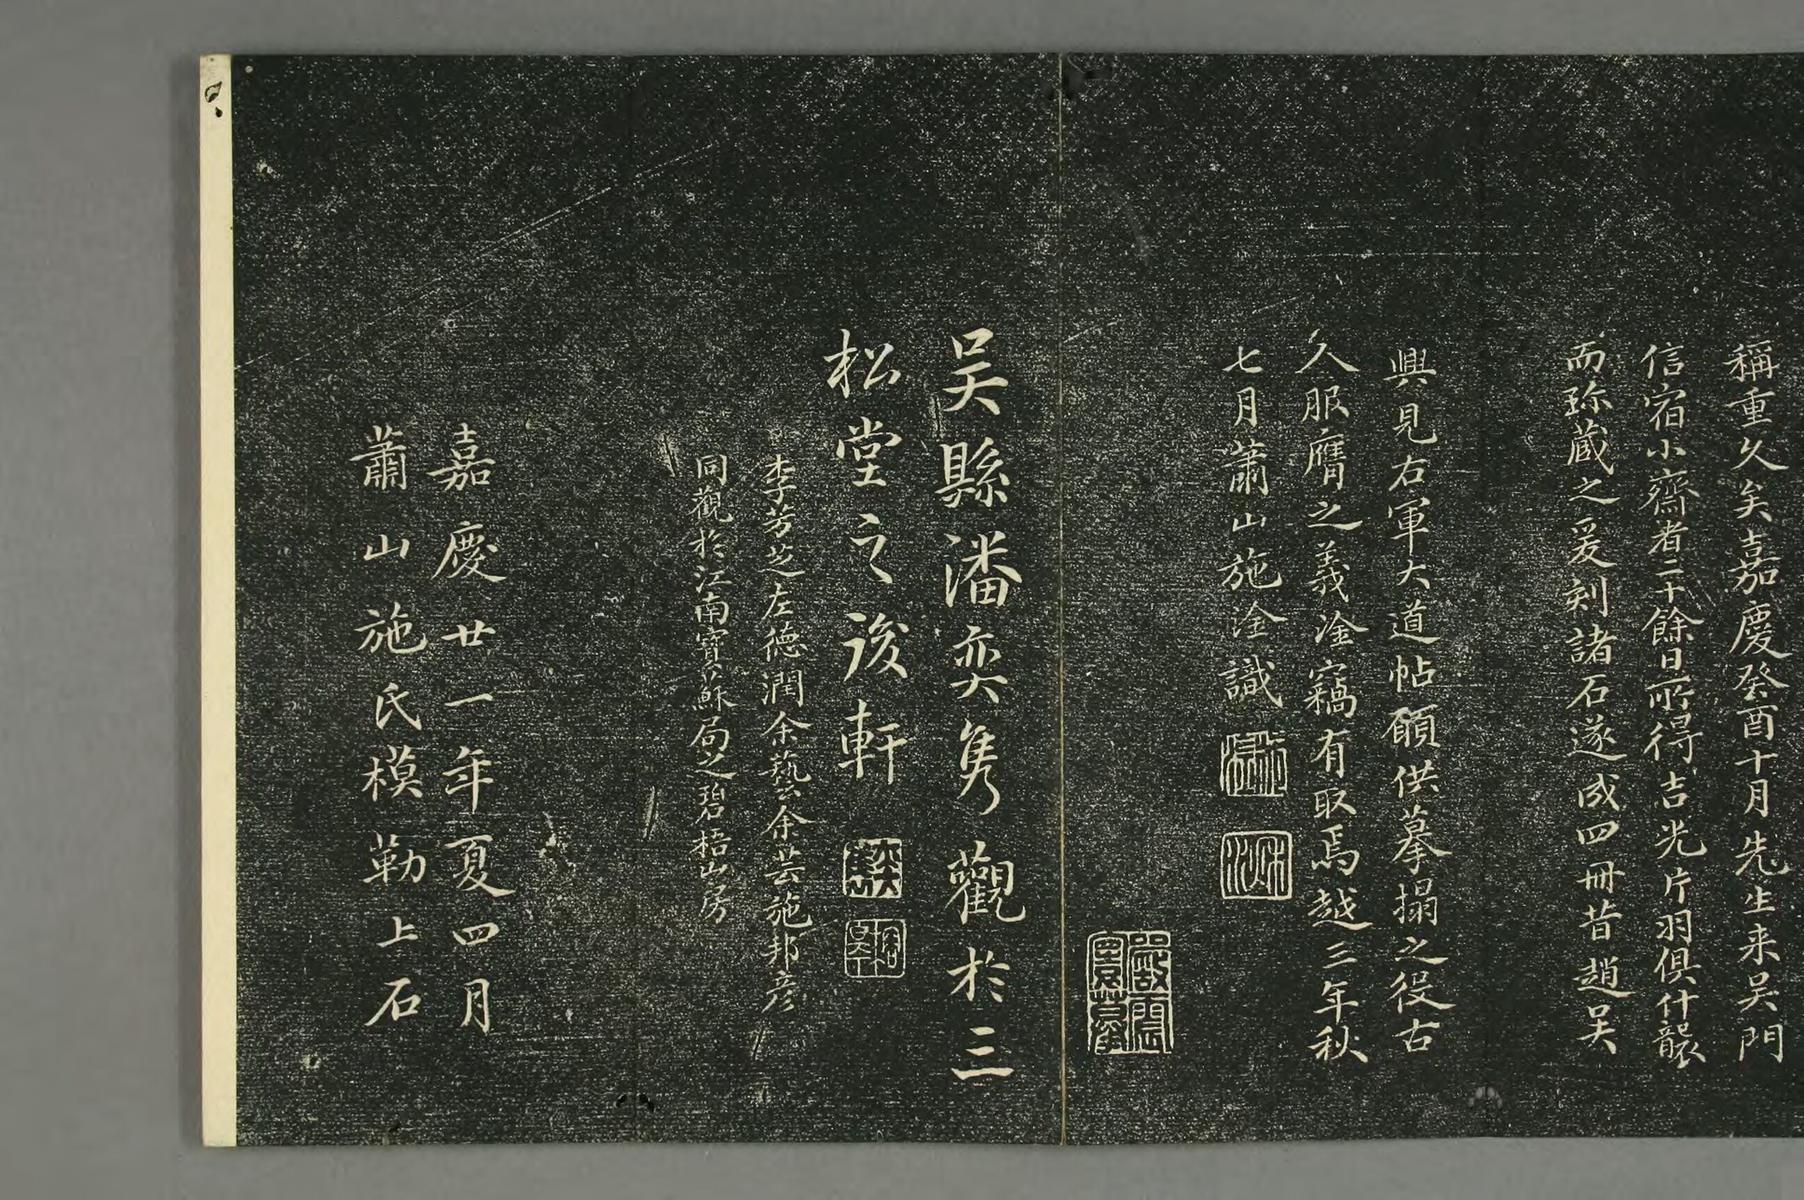 稱重久矣嘉慶癸酉十月先生来吴門
信宿小齋者二十餘日所得吉光片羽俱什襲
而珎蔵之爰刻諸石遂成四冊昔趙吴
興見右軍大道帖願供摹搨之役古
人服膺之義淦竊有取焉越三年秋
七月蕭山施淦識
吴縣潘奕隽觀於三
松堂之後軒
李芳芝左德潤余藝余芸施邦彦
同觀於江南寶蘇局之碧梧山房
嘉慶廿一年夏四月
蕭山施氏模勒上石